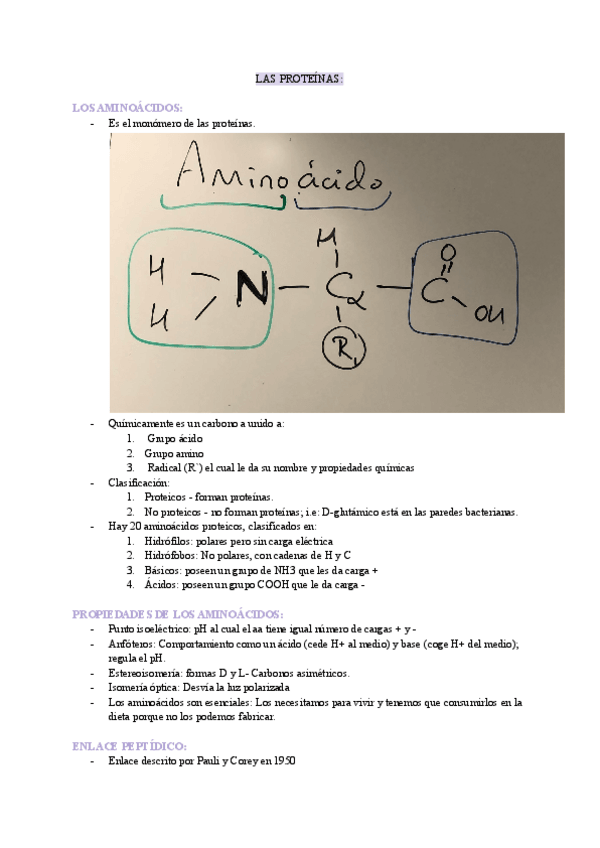 LAS PROTEÍNAS:
LOS AMINOÁCIDOS:
- Es el monómero de las proteínas.
Aminoácido
H
O
H
N - Cα - C
H
OH
R
- Químicamente es un carbono a unido a:
1. Grupo ácido
2. Grupo amino
3. Radical (R`) el cual le da su nombre y propiedades químicas
- Clasificación:
1. Proteicos - forman proteínas.
2. No proteicos - no forman proteínas; i.e: D-glutámico está en las paredes bacterianas.
- Hay 20 aminoácidos proteicos, clasificados en:
1. Hidrófilos: polares pero sin carga eléctrica
2. Hidrófobos: No polares, con cadenas de H y C
3. Básicos: poseen un grupo de NH3 que les da carga +
4. Ácidos: poseen un grupo COOH que le da carga -
PROPIEDADES DE LOS AMINOÁCIDOS:
- Punto isoeléctrico: pH al cual el aa tiene igual número de cargas + y -
- Anfóteros: Comportamiento como un ácido (cede H+ al medio) y base (coge H+ del medio);
regula el pH.
- Estereoisomería: formas D y L- Carbonos asimétricos.
- Isomería óptica: Desvía la luz polarizada
- Los aminoácidos son esenciales: Los necesitamos para vivir y tenemos que consumirlos en la
dieta porque no los podemos fabricar.
ENLACE PEPTÍDICO:
- Enlace descrito por Pauli y Corey en 1950